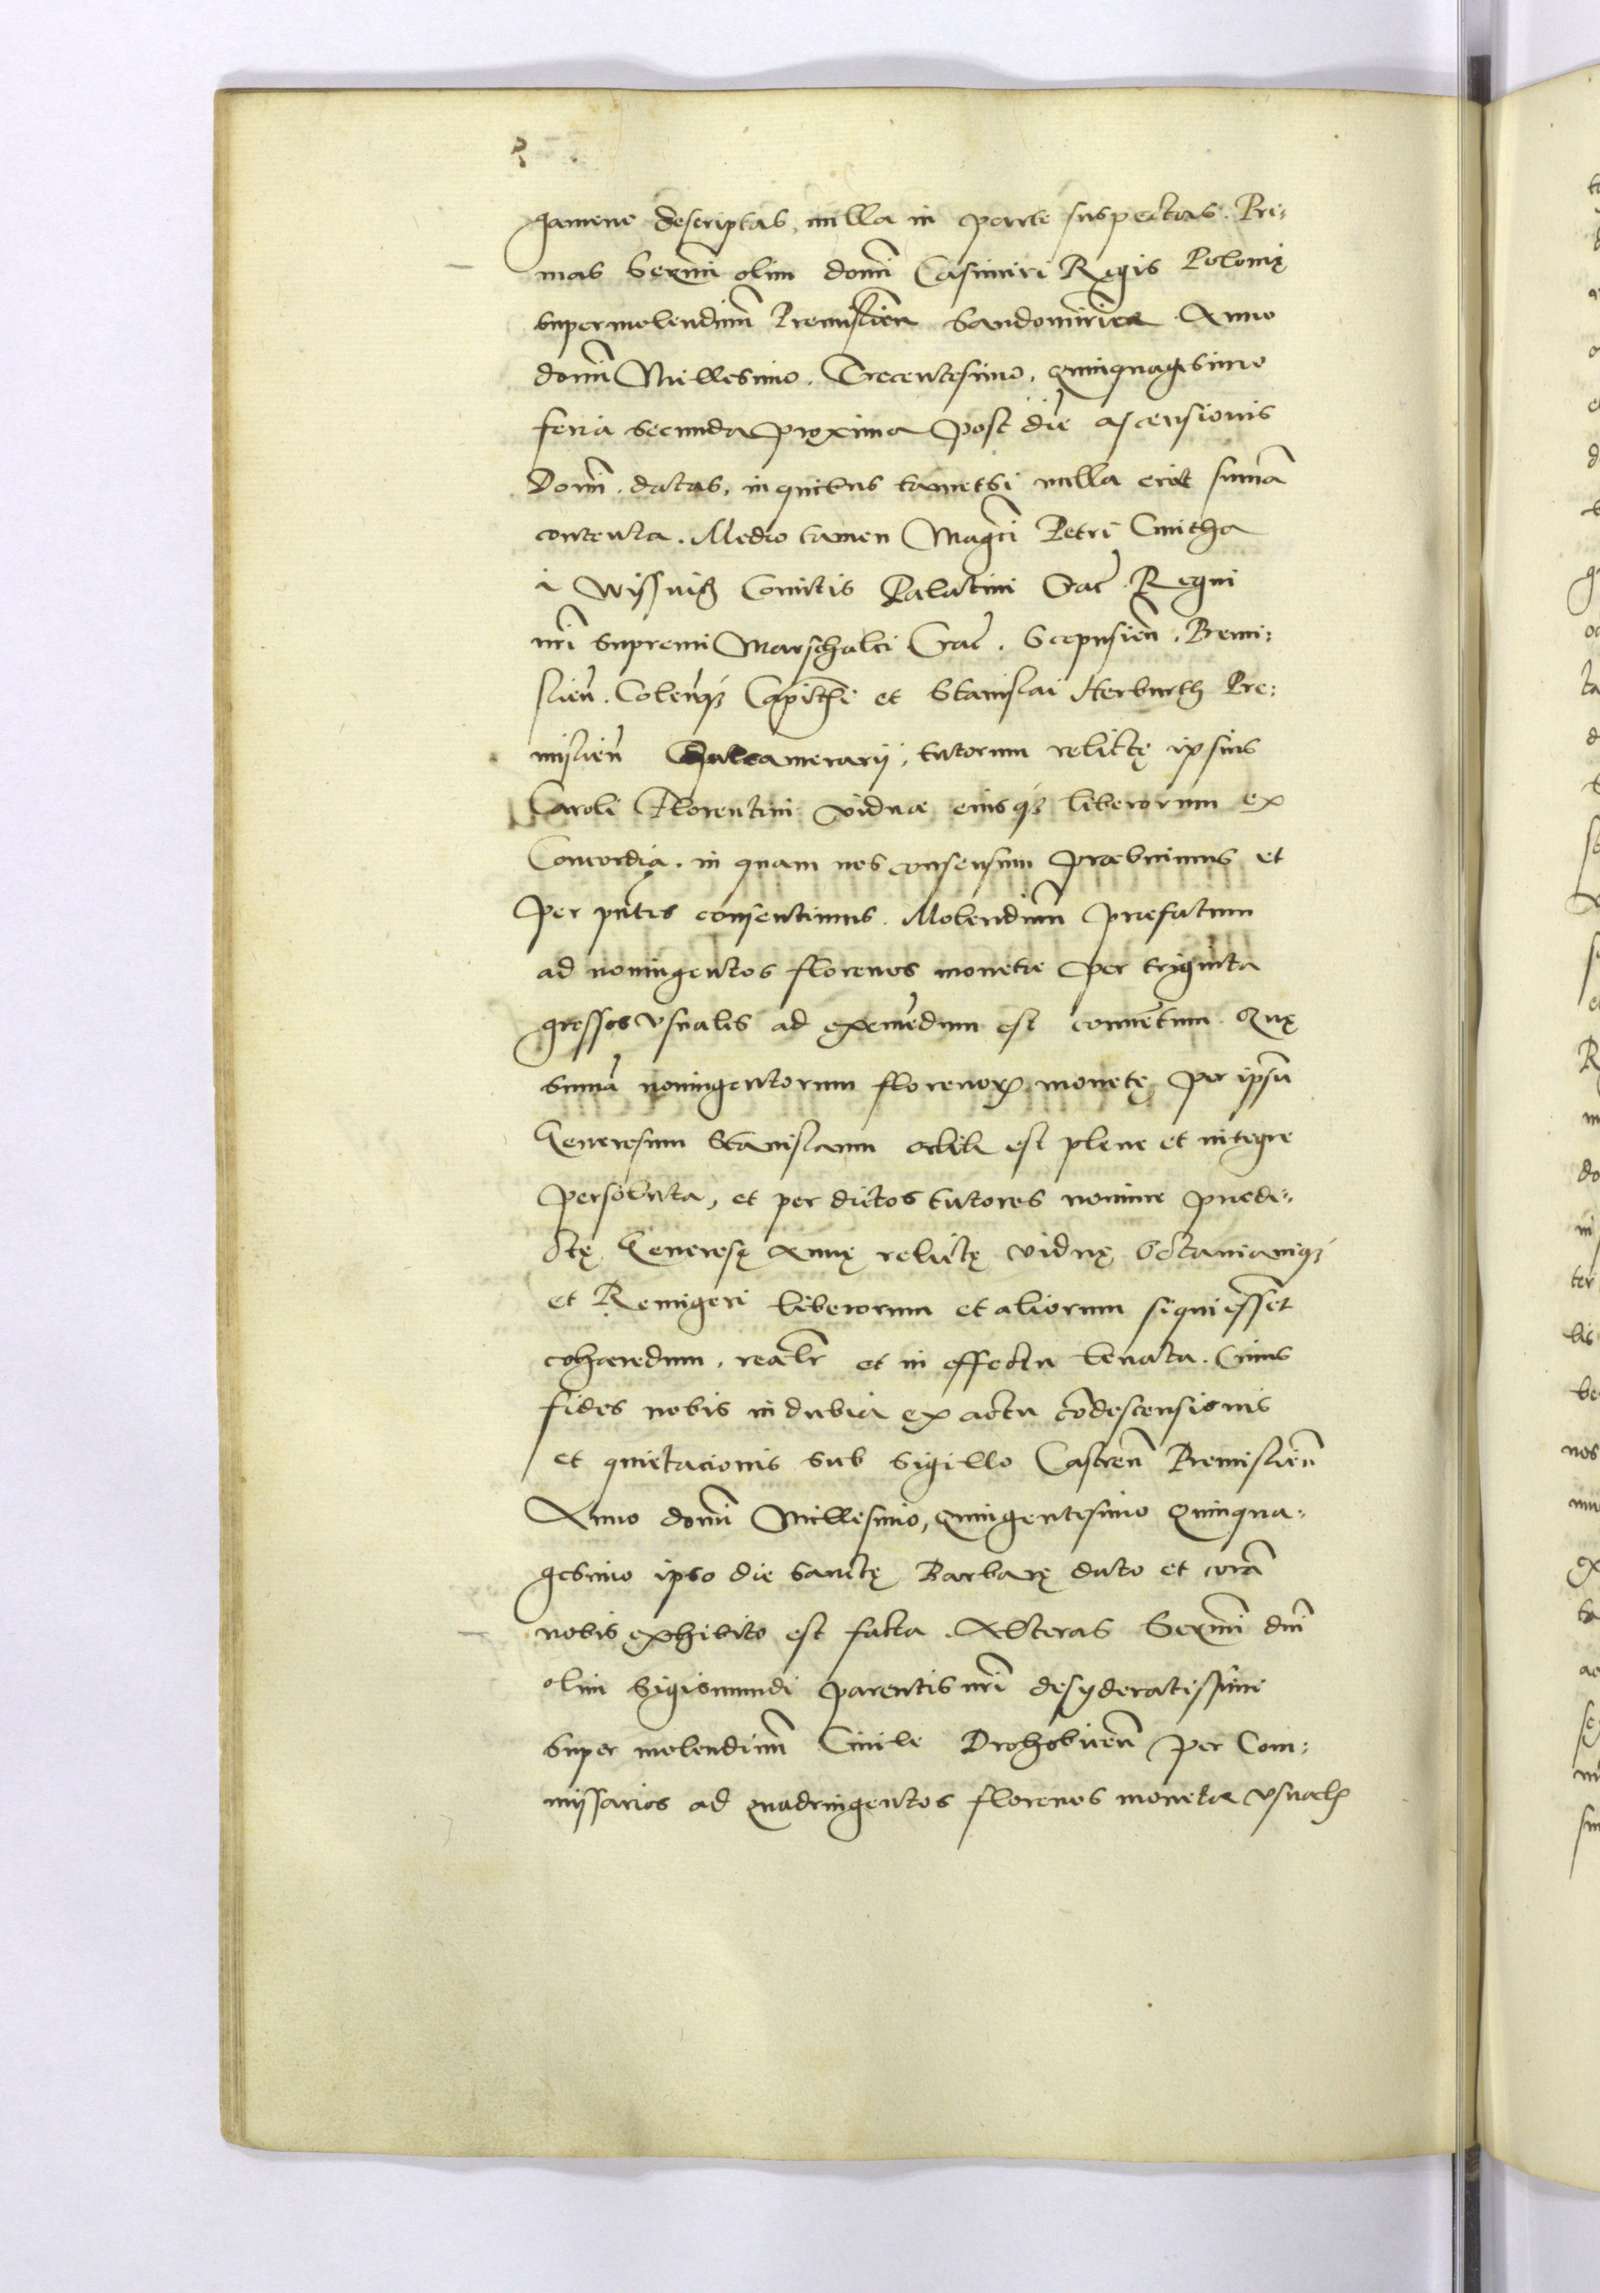 gameno descriptas, nulla in parte suspectas. Pri:
mas Serm̃i olim domĩ Casimiri Regis Polonię
super molendinũ Premislien̄ Sandomiriæ Anno
domĩ Millesimo. Trecentesimo. quinquagesimo
feria secunda proxima post diẽ ascensionis
Domĩ. datas, in quibus tametsi nulla erat sum̃a
contenta. Medio tamen Magci Petri Cmitha
à Wissnicz Comitis Palatini Crac̃. Regni
nrĩ supremi Marschalci Crac̃. Scepusien̄. Premi:
slien̄. Colenq₃ Capithẽ et Stanislai Herburth Pre:
mislien̄ Succamerarij, tutorum relictę ipsius
Caroli Florentini viduæ eiusq₃ liberorum ex
Concordia. in quam nos consensum præbuimus et
per pñtes consentimus. Molendinũ præfatum
ad noningentos florenos monetæ per triginta
grossos vsualis ad eximẽdum est conuẽtum. Quę
sum̃a noningentorum florenoꝝ monetę per ipsũ
Generosum Stanislaum est plene et integre
persoluta, et per dictos tutores nomine prædi:
ctę Generosę Annę relictę viduę Octavianiq₃
et Remigeri liberorum et aliorum siqui essẽt
cohæredum, realr̃ et in effectu leuata. Cuius
fides nobis indubia ex actu cõdescensionis
et quietacionis sub sigillo Castren̄ Premislien̄
Anno domĩ Millesimo, Quingentesimo Quinqua:
gesimo ipso die sanctę Barbarę dato et corã
nobis exhibito est facta. Alteras Serm̃i dnĩ
olim Sigismundi parentis nrĩ desyderatissimi
super molendinũ Ciuile Drohobicen̄ per Com:
missarios ad quadringentos florenos monetæ vsualꝭ